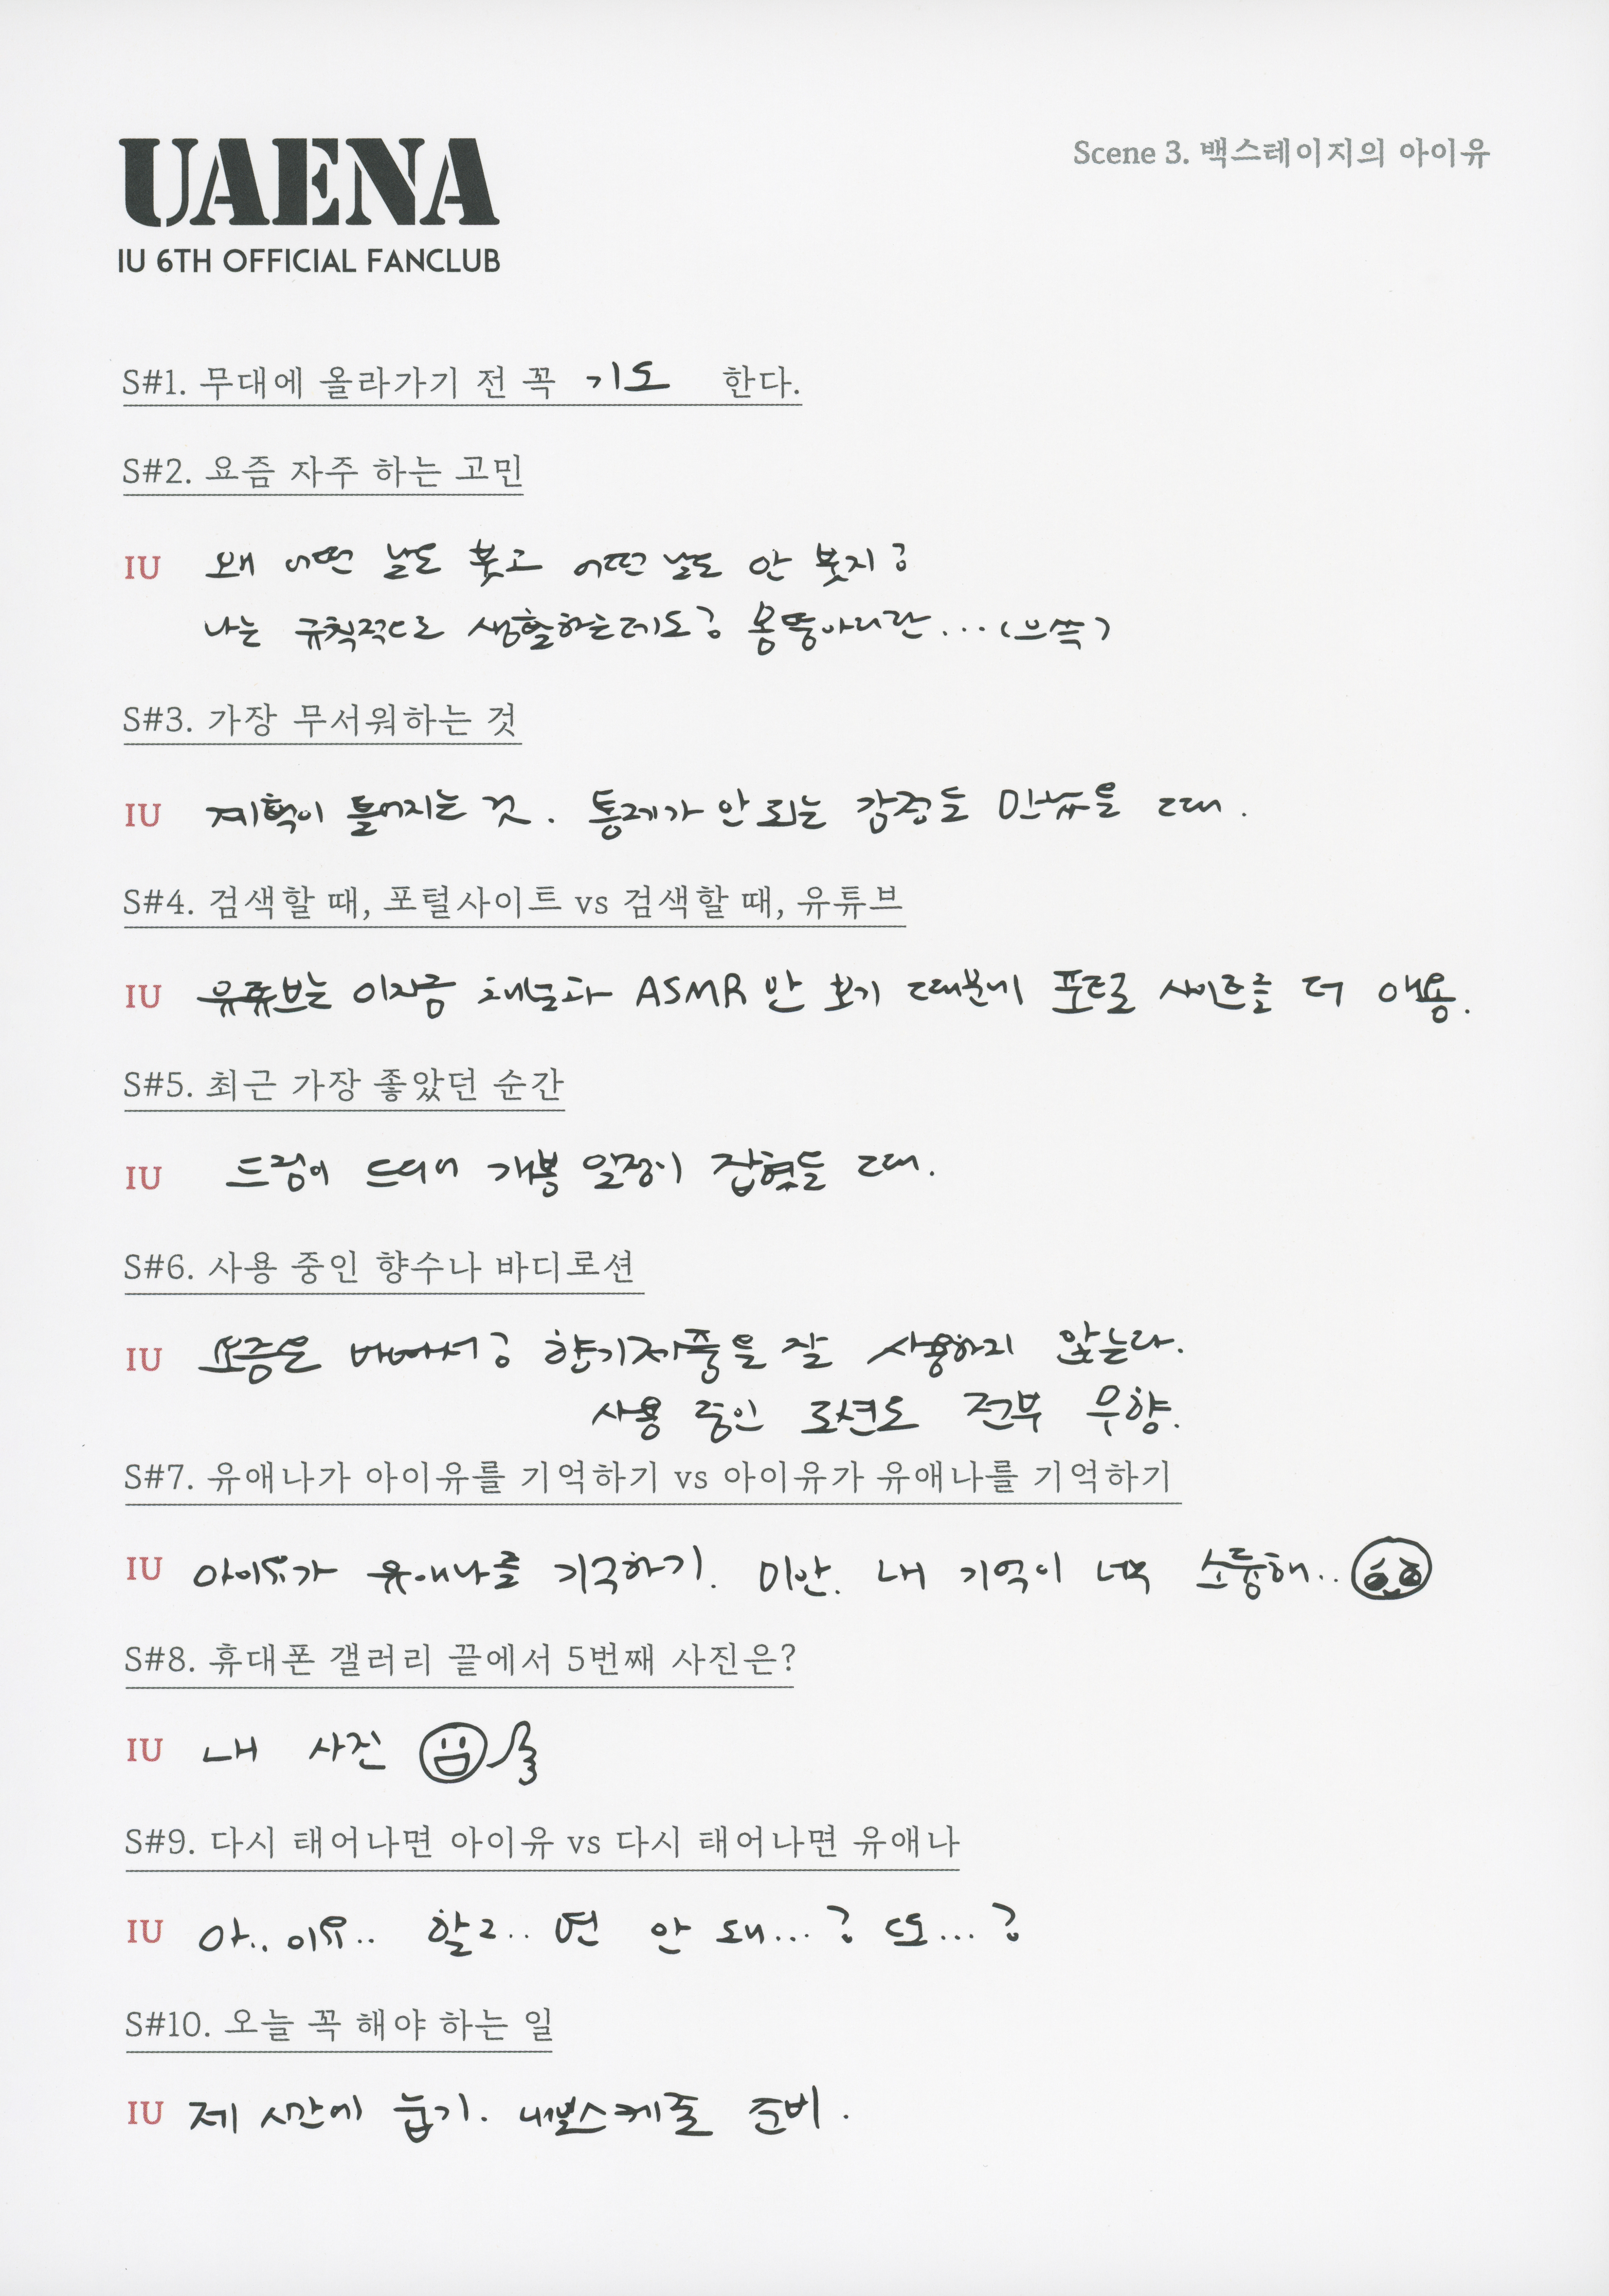 UAENA
IU 6TH OFFICIAL FANCLUB
Scene 3. 백스테이지의 아이유
S#1. 무대에 올라가기 전 꼭 기도 한다.
S#2. 요즘 자주 하는 고민
IU 왜 어떤 날도 붓고 어떤 날도 안 붓지?
나는 규칙적으로 생활하는데도? 몸뚱아리란...(으쓱)
S#3. 가장 무서워하는 것
IU 계획이 틀어지는 것. 통제가 안 되는 감정들 만났을 때.
S#4. 검색할 때, 포털사이트 vs 검색할 때, 유튜브
IU 유튜브는 이지금 채널과 ASMR 만 보기 때문에 포털 사이트를 더 애용.
S#5. 최근 가장 좋았던 순간
IU 드림이 드디어 개봉 일정이 잡혔을 때.
S#6. 사용 중인 향수나 바디로션
IU 요즘은 바빠서? 향기제품을 잘 사용하지 않는다.
사용 중인 로션도 전부 무향.
S#7. 유애나가 아이유를 기억하기 vs 아이유가 유애나를 기억하기
IU 아이유가 유애나를 기억하기. 미안. 내 기억이 너무 소중해..
S#8. 휴대폰 갤러리 끝에서 5번째 사진은?
IU 내 사진
S#9. 다시 태어나면 아이유 vs 다시 태어나면 유애나
IU 아.. 이유.. 할라.. 면 안 돼...? 또...?
S#10. 오늘 꼭 해야 하는 일
IU 제 시간에 눕기. 내일스케줄 준비.